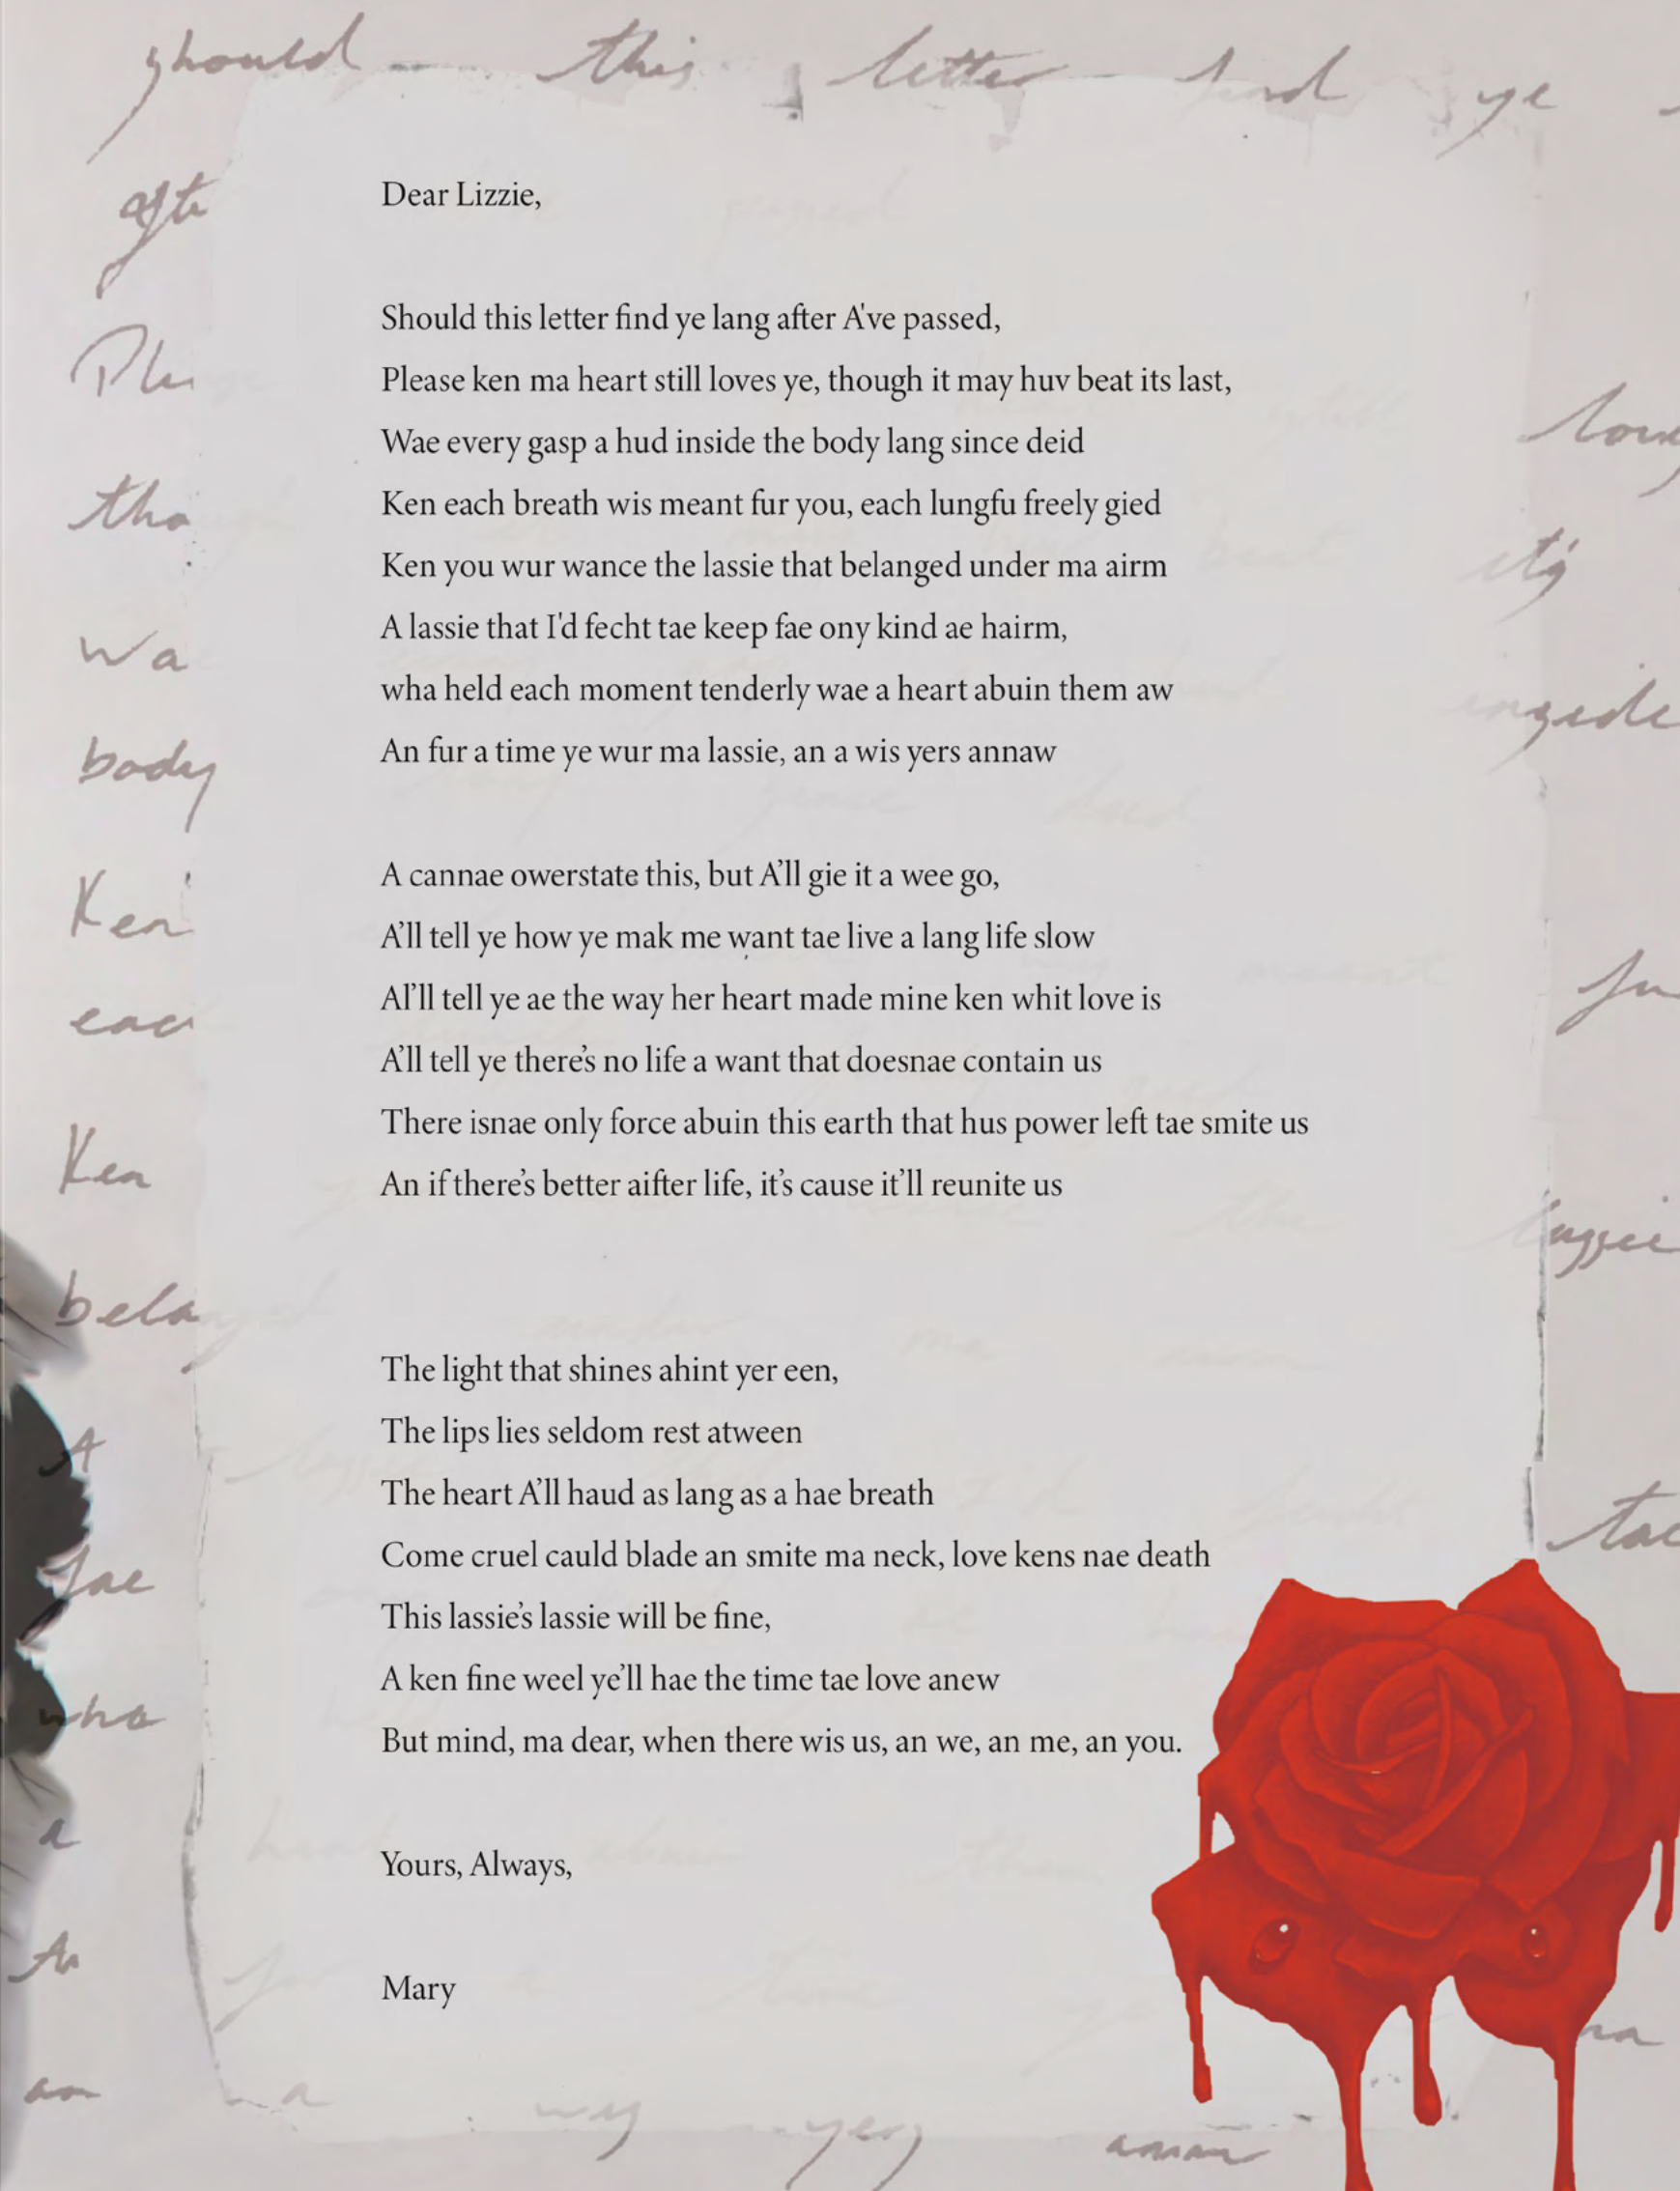 should this letter find ye
Dear Lizzie,
Should this letter find ye lang after A've passed,
Please ken ma heart still loves ye, though it may huv beat its last,
Wae every gasp a hud inside the body lang since deid
Ken each breath wis meant fur you, each lungfu freely gied
Ken you wur wance the lassie that belanged under ma airm
A lassie that I'd fecht tae keep fae ony kind ae hairm,
wha held each moment tenderly wae a heart abuin them aw
An fur a time ye wur ma lassie, an a wis yers annaw
A cannae owerstate this, but A'll gie it a wee go,
A'll tell ye how ye mak me want tae live a lang life slow
Al'll tell ye ae the way her heart made mine ken whit love is
A'll tell ye there's no life a want that doesnae contain us
There isnae only force abuin this earth that hus power left tae smite us
An if there's better aifter life, it's cause it'll reunite us
The light that shines ahint yer een,
The lips lies seldom rest atween
The heart A'll haud as lang as a hae breath
Come cruel cauld blade an smite ma neck, love kens nae death
This lassie's lassie will be fine,
A ken fine weel ye'll hae the time tae love anew
But mind, ma dear, when there wis us, an we, an me, an you.
Yours, Always,
Mary
body
Ken
Ken
A
fae
wha
a
an
a wis yers annaw
its
tae
ma